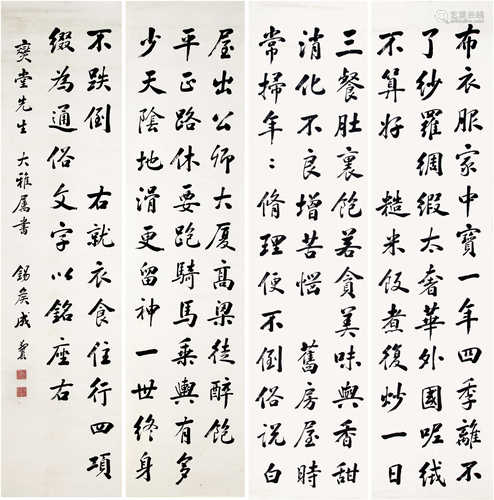 布衣服家中寶一年四季離不
了紗羅綢緞太奢華外國呢絨
不算好 糙米飯煮復炒一日
三餐肚裏飽若貪美味與香甜
消化不良增苦惱 舊房屋時
常掃年〻脩理便不倒俗說白
屋出公卿大厦高梁徒醉飽
平正路休要跑騎馬乘輿有多
少天陰地滑更留神一世終身
不跌倒 右就衣食住行四項
綴為通俗文字以銘座右
堂先生 大雅屬書 錫侯成